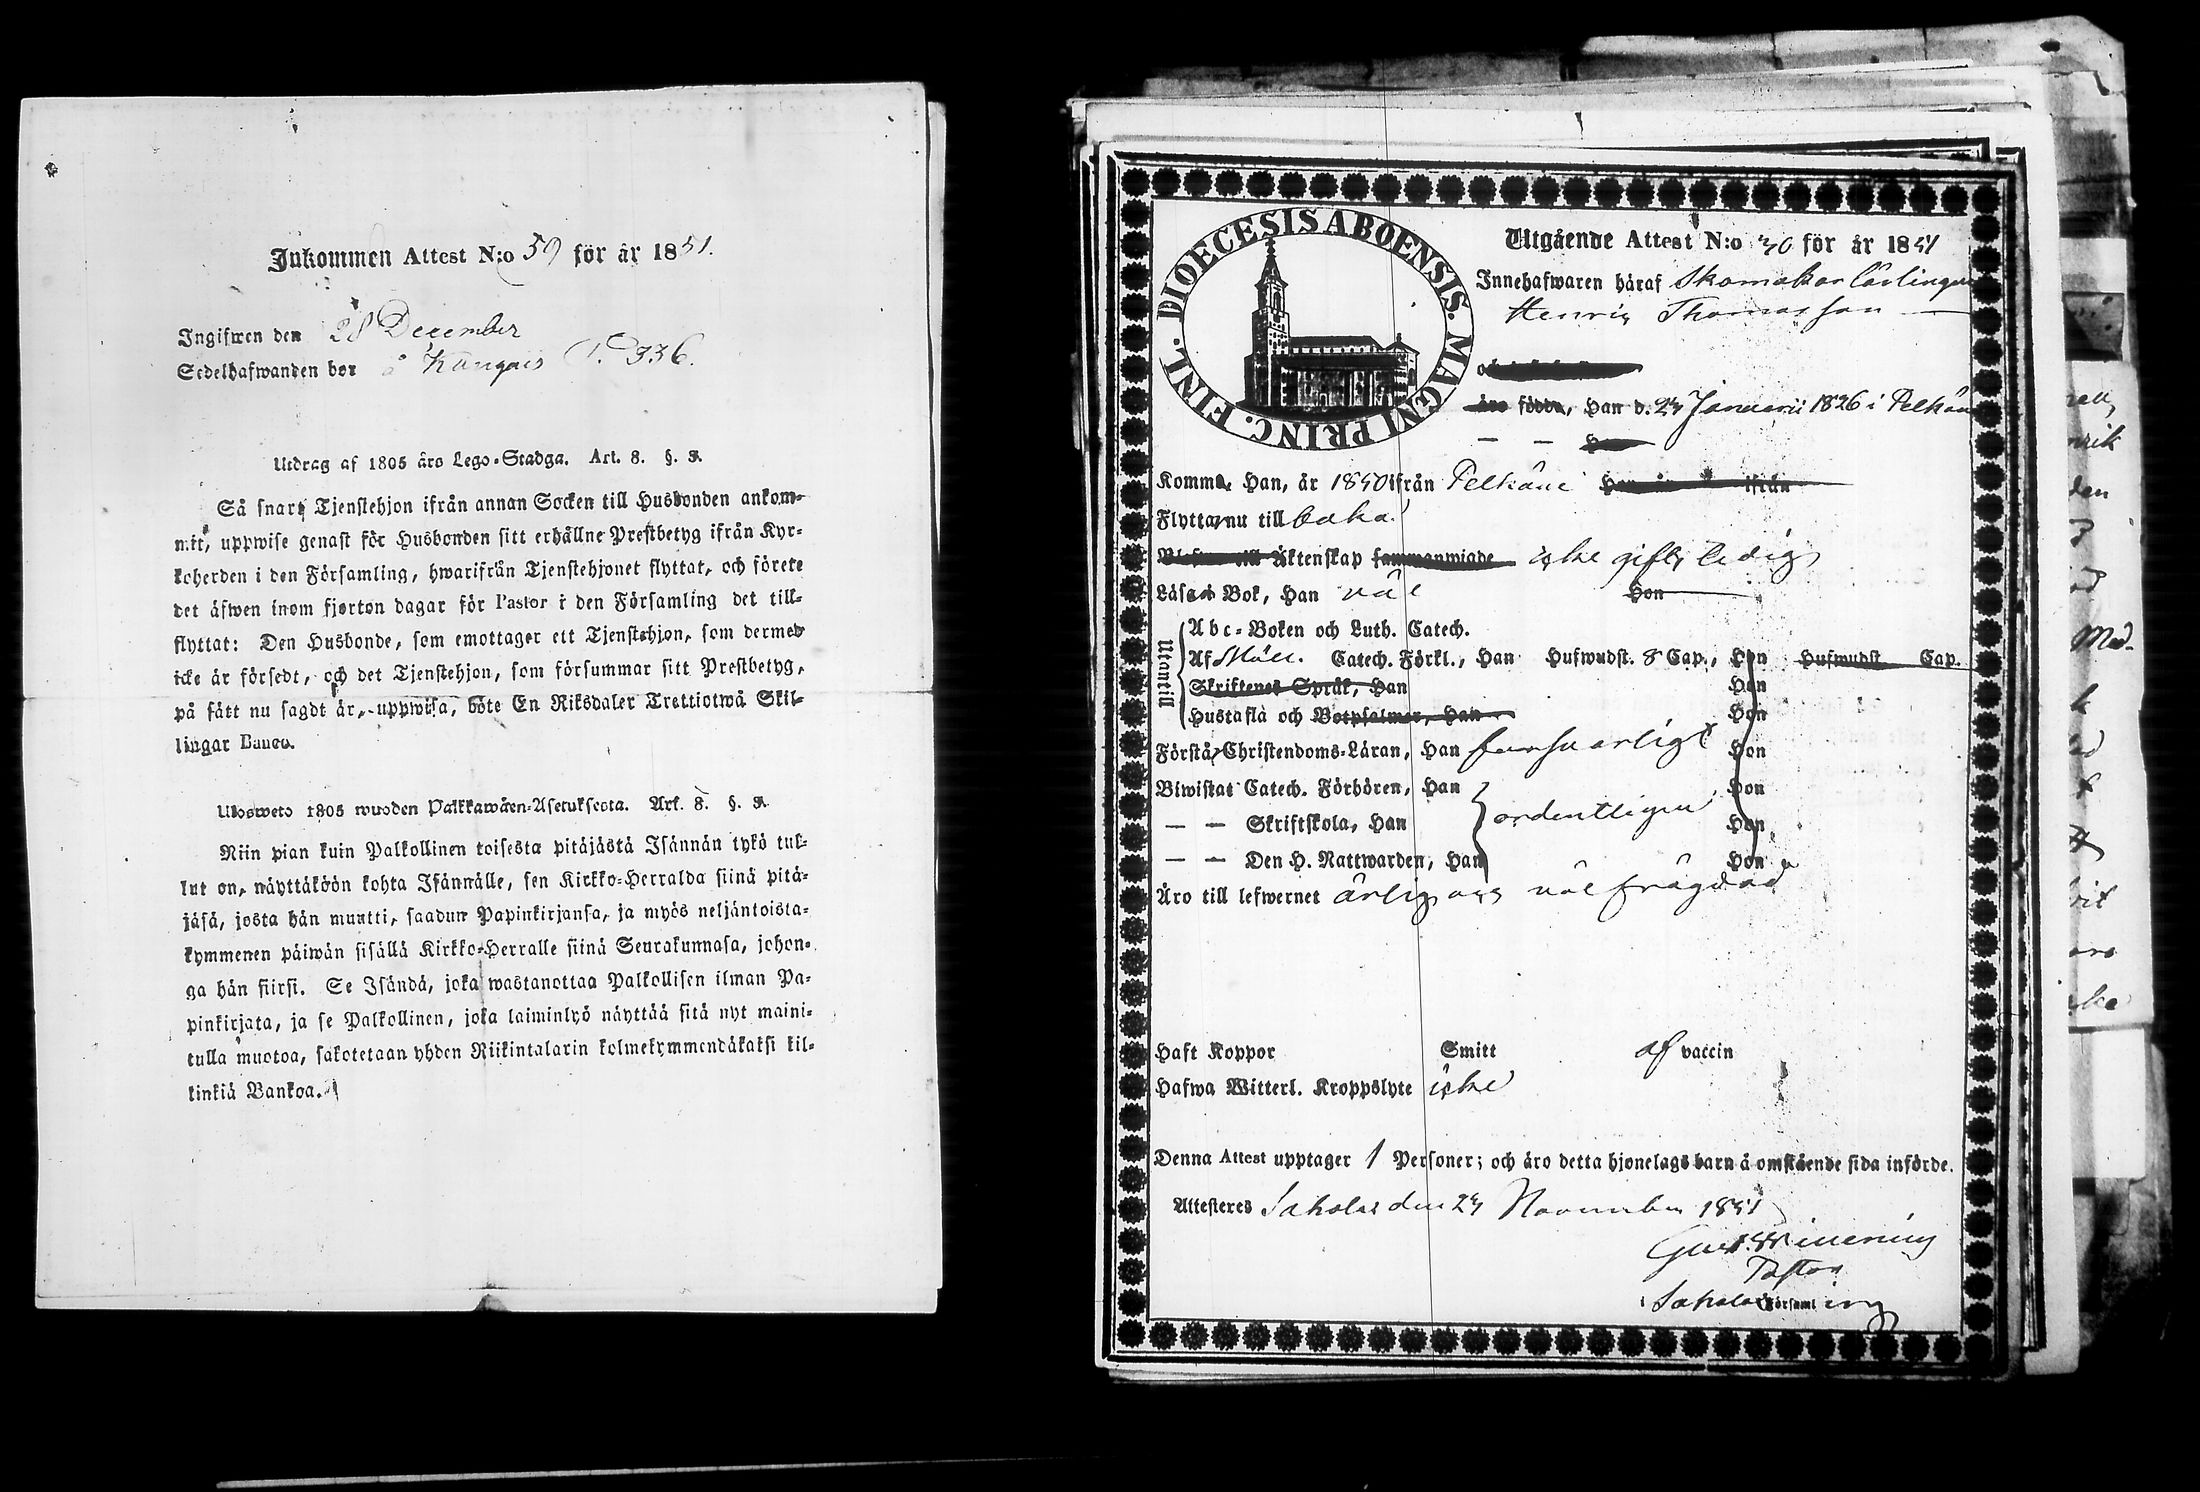 Inkommen Attest N:o 59 för år 1851.
Ingifwen den 28 December
Sedelhafwanden bor å Kangais P. 336.
Utdrag af 1805 års Lego-Stadga. Art. 8. §. 3.
Så snart Tjenstehjon ifrån annan Socken till Husbonden ankom-
mit, uppwise genast för Husbonden sitt erhållne Prestbetyg ifrån Kyr-
koherden i den Församling, hwarifrån Tjenstehjonet flyttat, och förete
det äfwen inom fjorton dagar för Pastor i den Församling det till-
flyttat: Den Husbonde, som emottager ett Tjenstehjon, som dermed
icke är försedt, och det Tjenstehjon, som försummar sitt Prestbetyg,
på sätt nu sagdt är, uppwisa, böte En Riksdaler Trettiotwå Skil-
lingar Banco.
Ulosweto 1805 wuoden Palkkawäen-Asetuksesta. Art. 8. §. 3.
Niin pian kuin Palkollinen toisesta pitäjästä Isännän tykö tul-
lut on, näyttäköön kohta Isännälle, sen Kirkko-Herralda siinä pitä-
jäsä, josta hän muutti, saadun Papinkirjansa, ja myös neljäntoista-
kymmenen päiwän sisällä Kirkko-Herralle siinä Seurakunnasa, johon-
ga hän siirsi. Se Isändä, joka wastanottaa Palkollisen ilman Pa-
pinkirjata, ja se Palkollinen, joka laiminlyö näyttää sitä nyt maini-
tulla muotoa, sakotetaan yhden Riikintalarin kolmekymmendäkaksi kil-
linkiä Bankoa.
DIOECESIS ABOENSIS. MAGNI PRINC. FINL.
Utgående Attest N:o 30 för år 1851
Innehafwaren häraf Skomakar Lärlingen
Henric Thomasson
äro födde, Han d. 24 Januarii 1826 i Pelkäne
Komma, Han, år 1850 ifrån Pelkäne Hon år ifrån
Flytta nu till baka
Äktenskap sammanwigde icke gift, ledig
Läsa i Bok, Han väl Hon
Utantill
Abc-Boken och Luth. Catech.
Af Möll. Catech. Förkl., Han Hufwudst. 8 Cap., Hon Hufwudst. Cap.
Skriftenes Språk, Han Hon
Hustafla och Botpsalmer, Han Hon
Förstå Christendoms-Läran, Han försvarligt Hon
Biwistat Catech. Förhören, Han Hon
— — Skriftskola, Han ordentligen Hon
— — Den H. Nattwarden, Han Hon
Äro till lefwernet ärlig och väl frägdad
Haft Koppor Smitt af vaccin
Hafwa Witterl. Kroppslyte icke
Denna Attest upptager 1 Personer; och äro detta hjonelags barn å omstående sida införde.
Attesteres Sahalax den 24 November 1851
Pastor
i Sahalax Församling